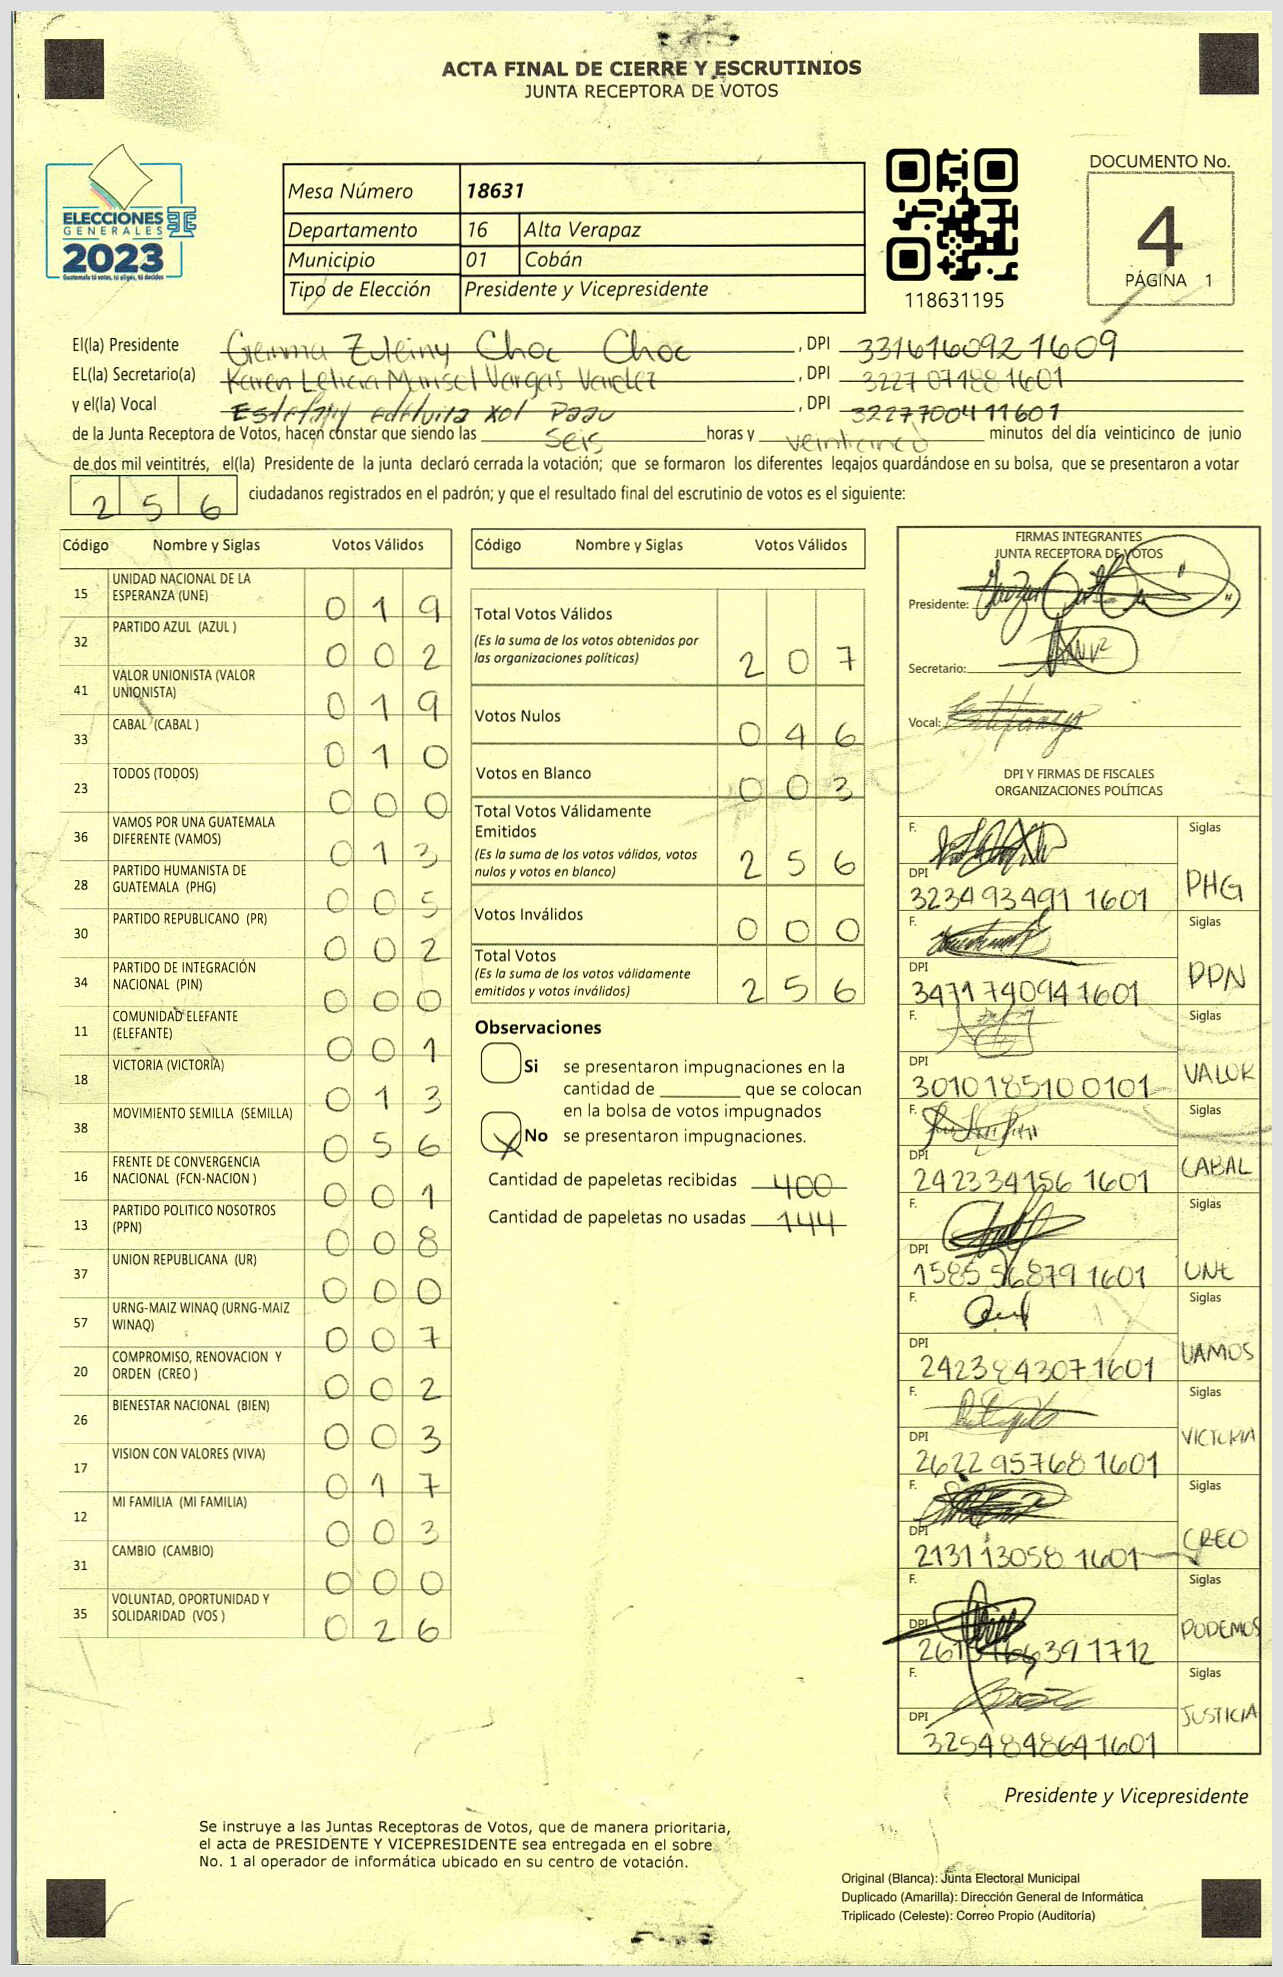 ACTA FINAL DE CIERRE Y ESCRUTINIOS
JUNTA RECEPTORA DE VOTOS
ELECCIONES
GENERALES
2023
Guatemala tú votas, tú eliges, tú decides
Mesa Número 18631
Departamento 16 Alta Verapaz
Municipio 01 Cobán
Tipo de Elección Presidente y Vicepresidente
118631195
DOCUMENTO No.
4
PÁGINA 1
El(la) Presidente Gemma Zuleiny Choc Choc , DPI 3316160921609
EL(la) Secretario(a) Karen Leticia Marisol Vargas , DPI 3227071881601
y el(la) Vocal Estefany Xol , DPI 3227700411601
de la Junta Receptora de Votos, hacen constar que siendo las seis horas y veinticinco minutos del día veinticinco de junio
de dos mil veintitrés, el(la) Presidente de la junta declaró cerrada la votación; que se formaron los diferentes legajos guardándose en su bolsa, que se presentaron a votar
256 ciudadanos registrados en el padrón; y que el resultado final del escrutinio de votos es el siguiente:
Código Nombre y Siglas Votos Válidos
15 UNIDAD NACIONAL DE LA ESPERANZA (UNE) 019
32 PARTIDO AZUL (AZUL ) 002
41 VALOR UNIONISTA (VALOR UNIONISTA) 019
33 CABAL (CABAL ) 010
23 TODOS (TODOS) 000
36 VAMOS POR UNA GUATEMALA DIFERENTE (VAMOS) 013
28 PARTIDO HUMANISTA DE GUATEMALA (PHG) 005
30 PARTIDO REPUBLICANO (PR) 002
34 PARTIDO DE INTEGRACIÓN NACIONAL (PIN) 000
11 COMUNIDAD ELEFANTE (ELEFANTE) 001
18 VICTORIA (VICTORIA) 013
38 MOVIMIENTO SEMILLA (SEMILLA) 056
16 FRENTE DE CONVERGENCIA NACIONAL (FCN-NACION ) 001
13 PARTIDO POLITICO NOSOTROS (PPN) 008
37 UNION REPUBLICANA (UR) 000
57 URNG-MAIZ WINAQ (URNG-MAIZ WINAQ) 007
20 COMPROMISO, RENOVACION Y ORDEN (CREO ) 002
26 BIENESTAR NACIONAL (BIEN) 003
17 VISION CON VALORES (VIVA) 017
12 MI FAMILIA (MI FAMILIA) 003
31 CAMBIO (CAMBIO) 000
35 VOLUNTAD, OPORTUNIDAD Y SOLIDARIDAD (VOS ) 026
Código Nombre y Siglas Votos Válidos
Total Votos Válidos
(Es la suma de los votos obtenidos por
las organizaciones políticas) 207
Votos Nulos 046
Votos en Blanco 003
Total Votos Válidamente
Emitidos
(Es la suma de los votos válidos, votos
nulos y votos en blanco) 256
Votos Inválidos 000
Total Votos
(Es la suma de los votos válidamente
emitidos y votos inválidos) 256
Observaciones
Si se presentaron impugnaciones en la
cantidad de ________ que se colocan
en la bolsa de votos impugnados
X No se presentaron impugnaciones.
Cantidad de papeletas recibidas 400
Cantidad de papeletas no usadas 144
FIRMAS INTEGRANTES
JUNTA RECEPTORA DE VOTOS
Presidente:
Secretario:
Vocal:
DPI Y FIRMAS DE FISCALES
ORGANIZACIONES POLÍTICAS
F. Siglas
DPI 3234934911601 PHG
F. Siglas
DPI 3471740941601 PPN
F. Siglas
DPI 3010185100101 VALOR
F. Siglas
DPI 2423341561601 CABAL
F. Siglas
DPI 1585568791601 UNE
F. Siglas
DPI 2423843071601 VAMOS
F. Siglas
DPI 2622957681601 VICTORIA
F. Siglas
DPI 2131130581601 CREO
F. Siglas
DPI PODEMOS
F. Siglas
DPI 3254848641601 JUSTICIA
Presidente y Vicepresidente
Se instruye a las Juntas Receptoras de Votos, que de manera prioritaria,
el acta de PRESIDENTE Y VICEPRESIDENTE sea entregada en el sobre
No. 1 al operador de informática ubicado en su centro de votación.
Original (Blanca): Junta Electoral Municipal
Duplicado (Amarilla): Dirección General de Informática
Triplicado (Celeste): Correo Propio (Auditoría)